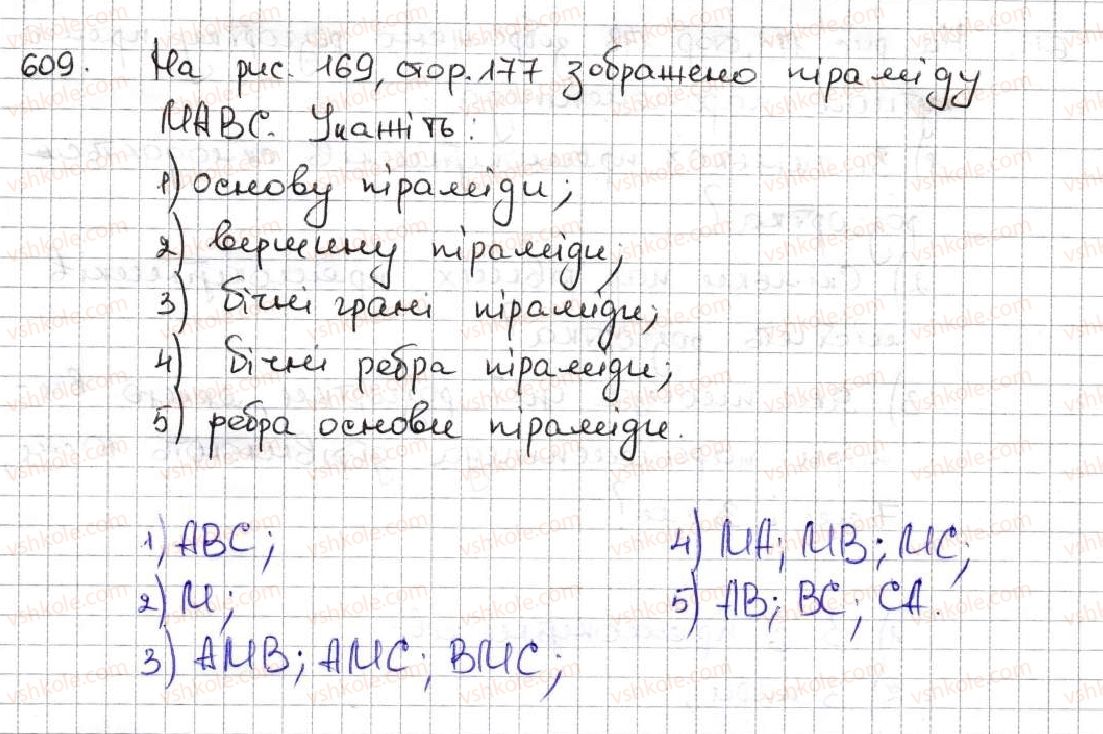 609. На рис. 169, стор. 177 зображено піраміду
МАВС. Укажіть:
1) основу піраміди;
2) вершину піраміди;
3) бічні грані піраміди;
4) бічні ребра піраміди;
5) ребра основи піраміди.
1) АВС;
2) М;
3) АМВ; АМС; ВМС;
4) МА; МВ; МС;
5) АВ; ВС; СА.